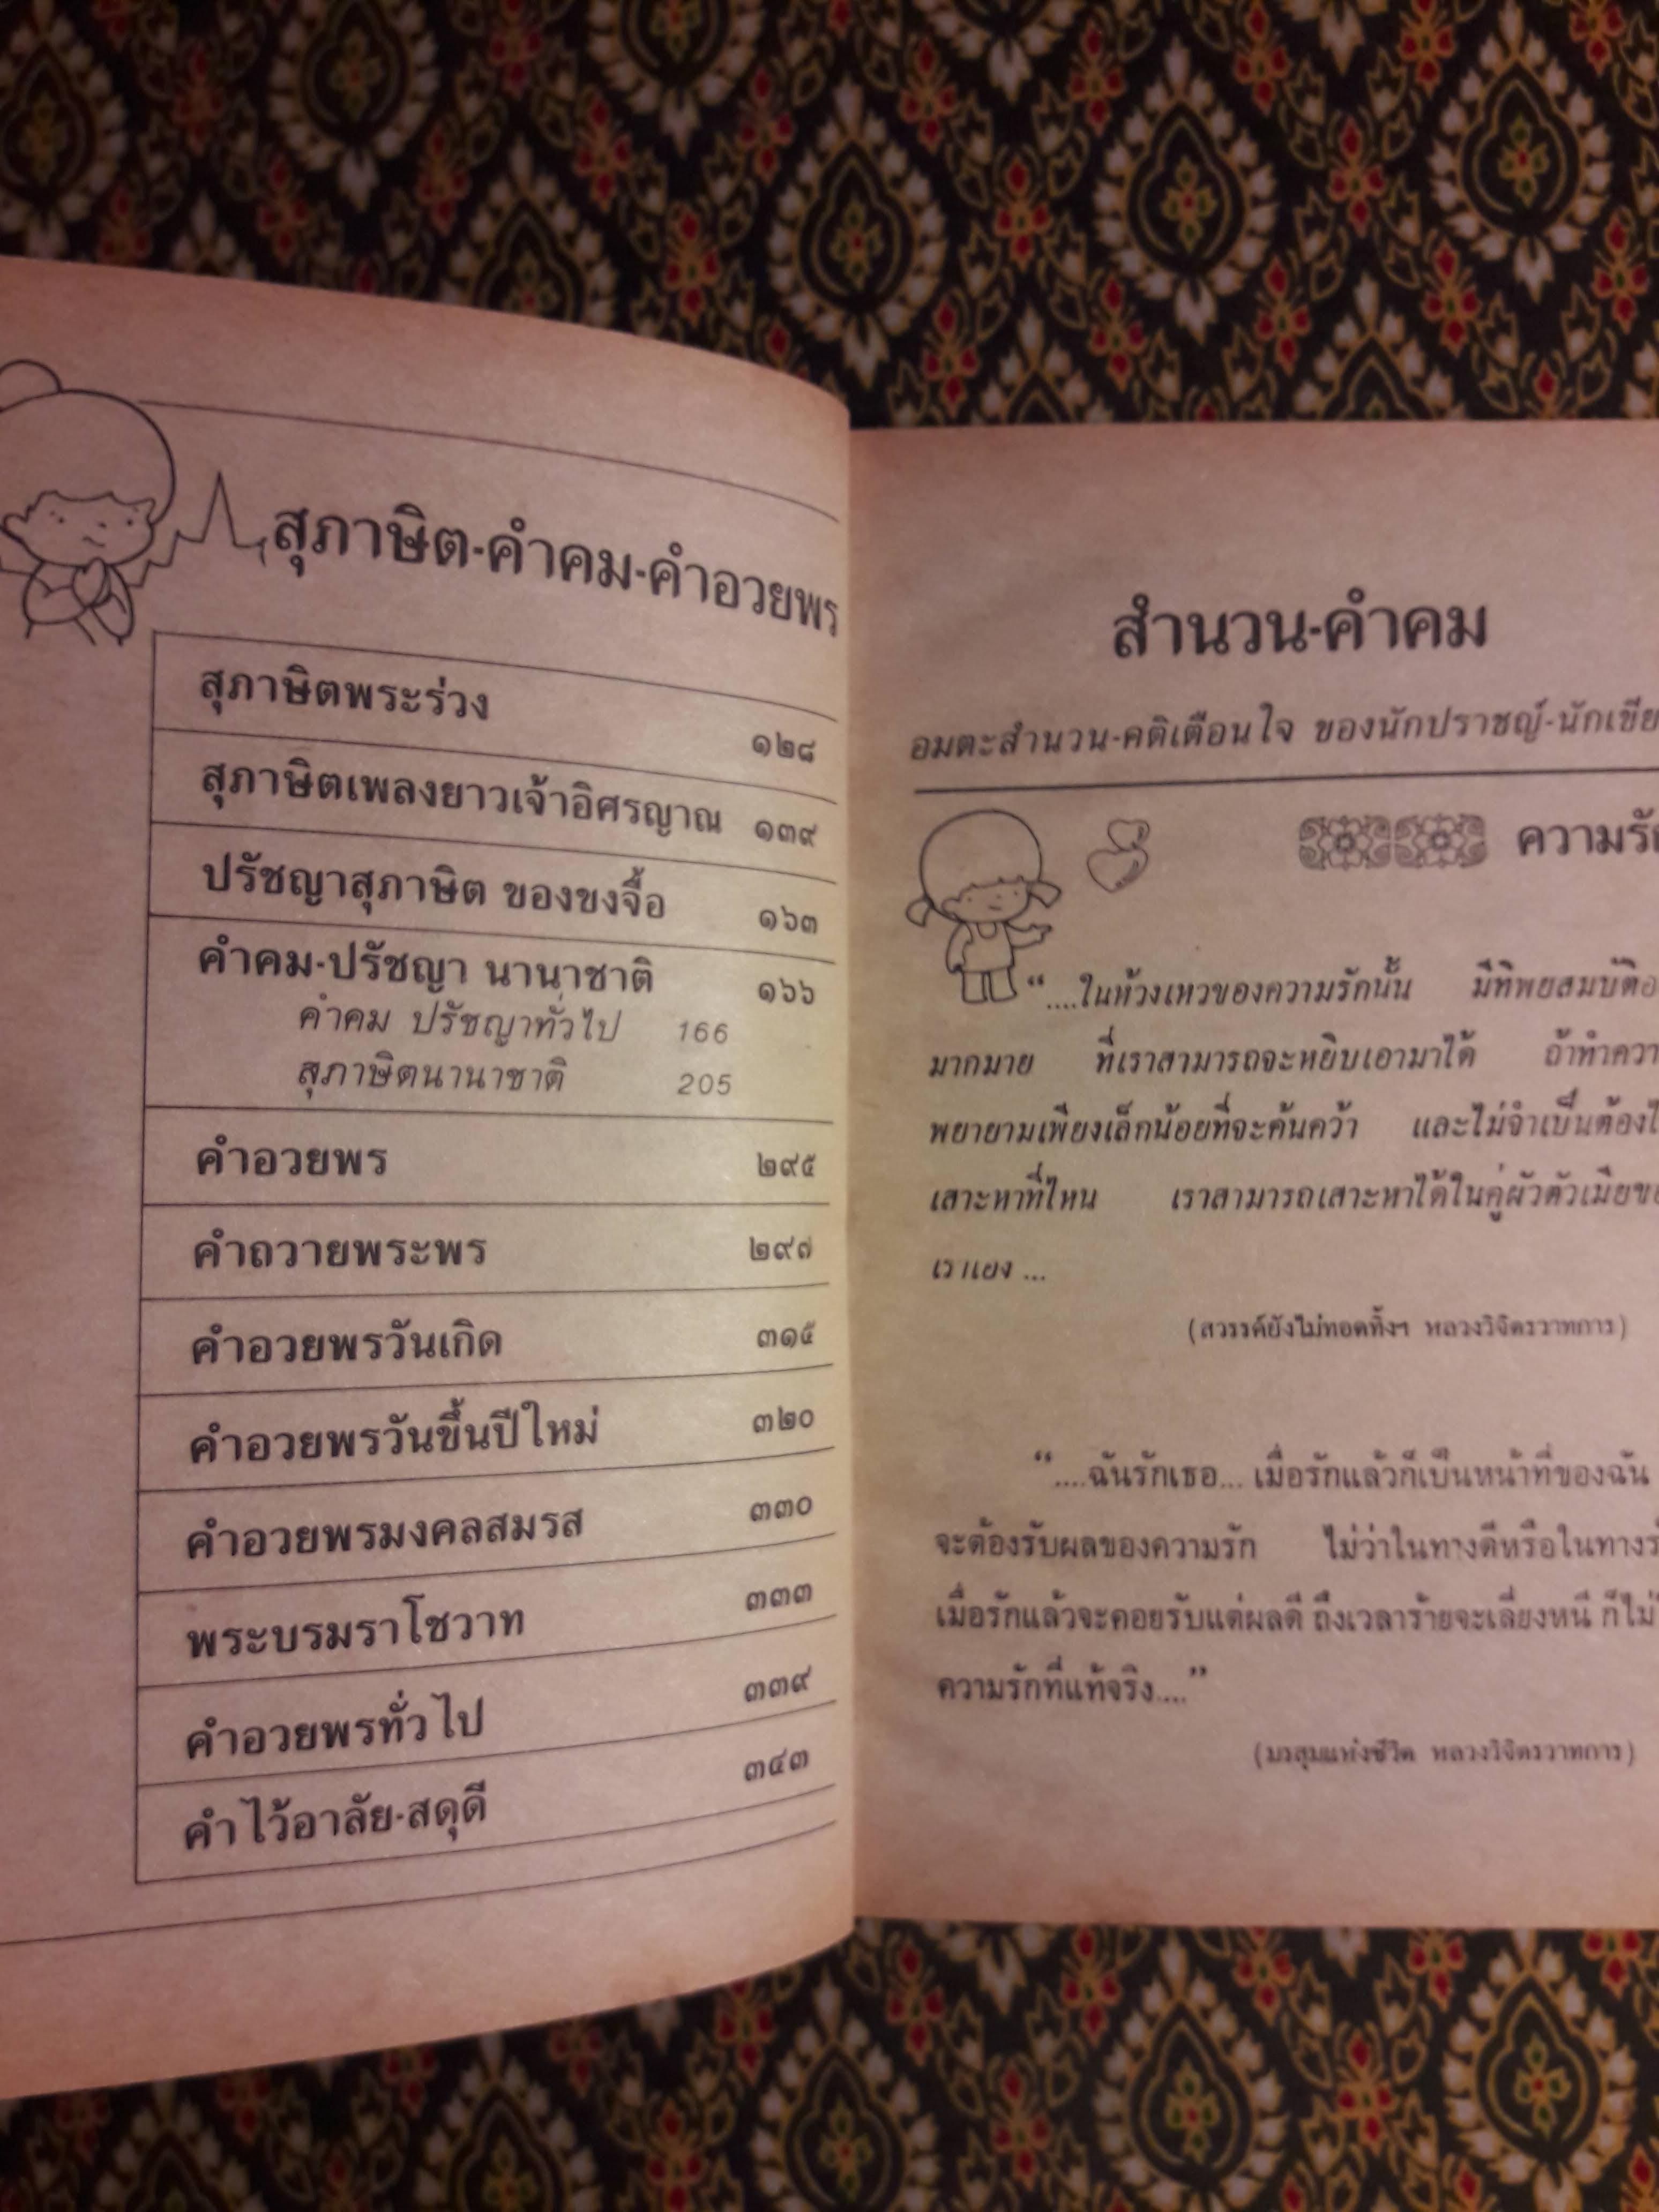 สุภาษิต-คำคม-คำอวยพร
สุภาษิตพระร่วง ๑๒๘
สุภาษิตเพลงยาวเจ้าอิศรญาณ ๑๓๙
ปรัชญาสุภาษิต ของขงจื้อ ๑๖๓
คำคม-ปรัชญา นานาชาติ ๑๖๖
คำคม ปรัชญาทั่วไป 166
สุภาษิตนานาชาติ 205
คำอวยพร ๒๙๕
คำถวายพระพร ๒๙๗
คำอวยพรวันเกิด ๓๑๕
คำอวยพรวันขึ้นปีใหม่ ๓๒๐
คำอวยพรมงคลสมรส ๓๓๐
พระบรมราโชวาท ๓๓๓
คำอวยพรทั่วไป ๓๓๙
คำไว้อาลัย-สดุดี ๓๔๓
สำนวน-คำคม
อมตะสำนวน-คติเตือนใจ ของนักปราชญ์-นักเขีย
ความรั
“....ในห้วงเหวของความรักนั้น มีทิพยสมบัติ
มากมาย ที่เราสามารถจะหยิบเอามาได้ ถ้าทำควา
พยายามเพียงเล็กน้อยที่จะค้นคว้า และไม่จำเป็นต้อง
เสาะหาที่ไหน เราสามารถเสาะหาได้ในคู่ผัวตัวเมียข
เราเอง ...
(สวรรค์ยังไม่ทอดทิ้งฯ หลวงวิจิตรวาทการ)
“....ฉันรักเธอ... เมื่อรักแล้วก็เป็นหน้าที่ของฉัน
จะต้องรับผลของความรัก ไม่ว่าในทางดีหรือในทางร้
เมื่อรักแล้วจะคอยรับแต่ผลดี ถึงเวลาร้ายจะเลี่ยงหนี ก็ไม่
ความรักที่แท้จริง....”
(มรสุมแห่งชีวิต หลวงวิจิตรวาทการ)